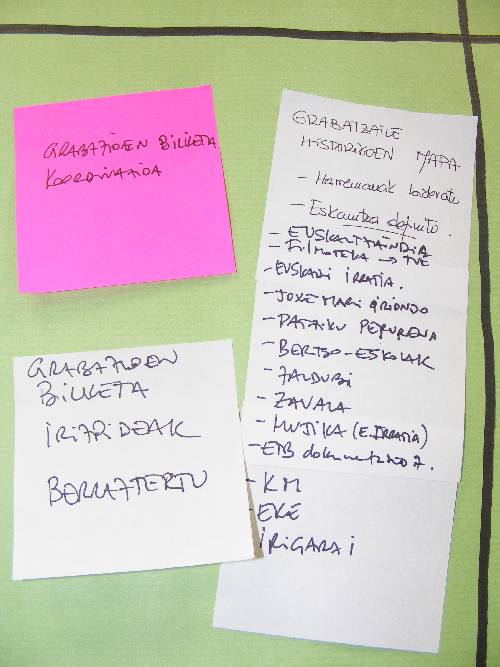 GRABAZIOEN BILKETA
KOORDINAZIOA
GRABATZAILE
HISTORIKOEN MAPA
- Harremanak bideratu
- Eskaintza definitu.
- EUSKALTZAINDIA
- FILMOTEKA → TVE
- EUSKADI IRRATIA.
- JOXE MARI IRIONDO
- PATXIKU PERURENA
- BERTSO-ESKOLAK
- ZALDUBI
- ZAVALA
- MUJIKA (E. IRRATIA)
- ETB dokumentazioa.
- KM
- EKE
- IRIGARAI
GRABAZIOEN
BILKETA
IRIZPIDEAK
BERRAZTERTU